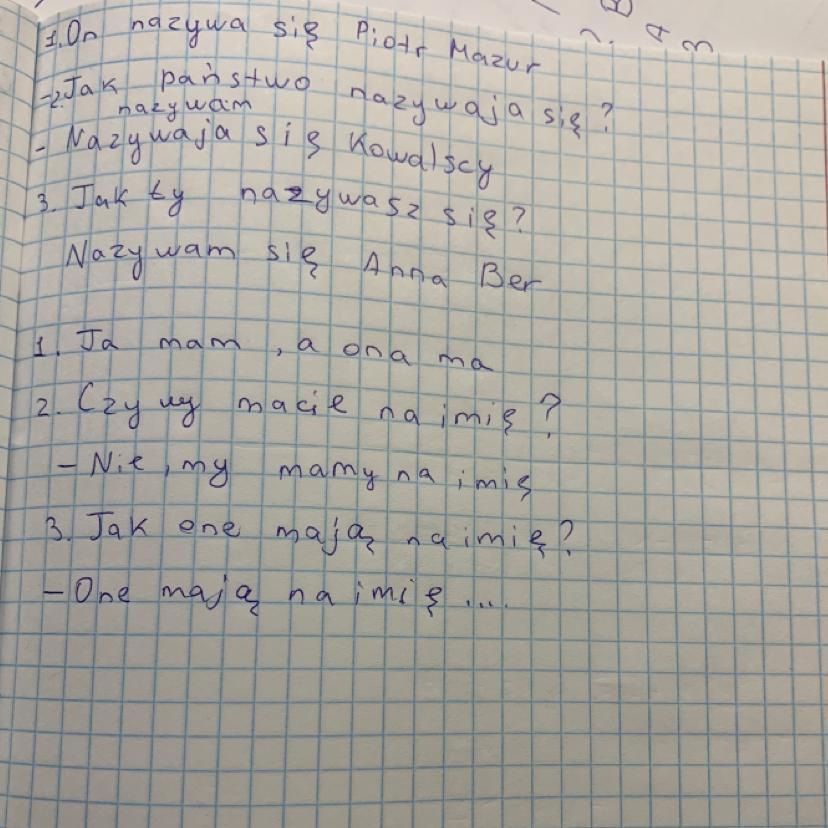 1. On nazywa się Piotr Mazur
-2. Jak państwo nazywaja się?
nazywam
- Nazywaja się Kowalscy
3. Jak ty nazywasz się?
Nazywam się Anna Ber
1. Ja mam, a ona ma
2. Czy wy macie na imię?
- Nie, my mamy na imię
3. Jak one mają na imię?
- One mają na imię ...